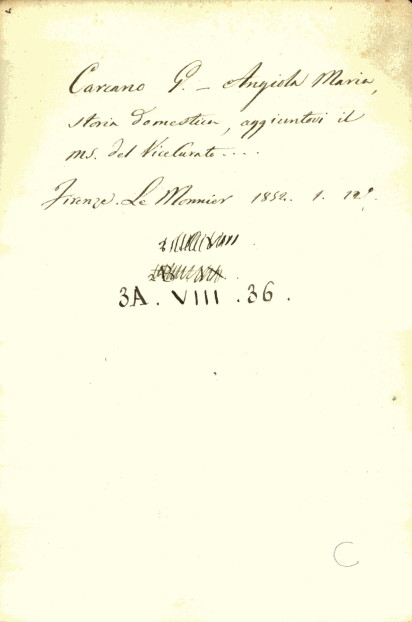 Carcano G. – Angiola Maria,
storia domestica, aggiuntovi il
ms. del ViceCurato....
Firenze. Le Monnier 1852. 1. 12°.
3A. VIII. 36.
C